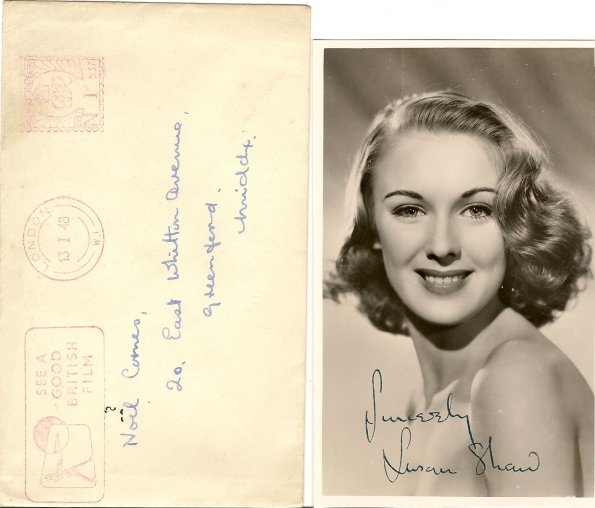 LONDON
W1
13 I 48
SEE A
GOOD
BRITISH
FILM
Noël
20. East Whitton Avenue,
Greenford.
Middx.
Sincerely
Susan Shaw